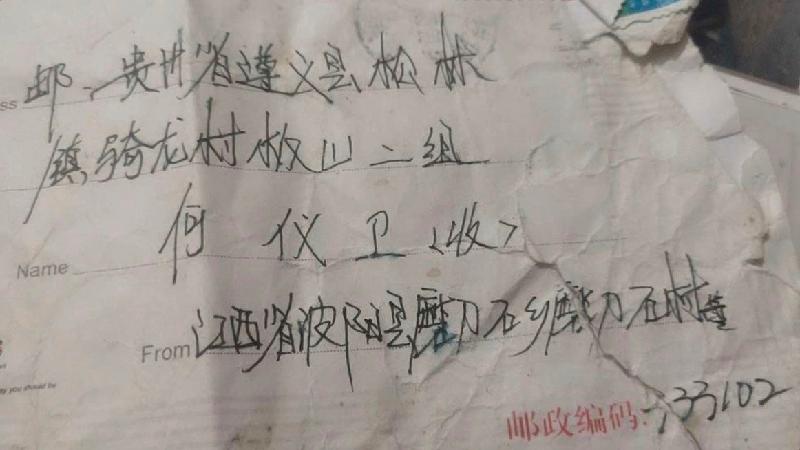 ss 邮、贵州省遵义县松林
镇骑龙村枚山二组
Name 何仪卫(收)
From 江西省波阳县磨刀石乡磨刀石村
y you should be
邮政编码:333102